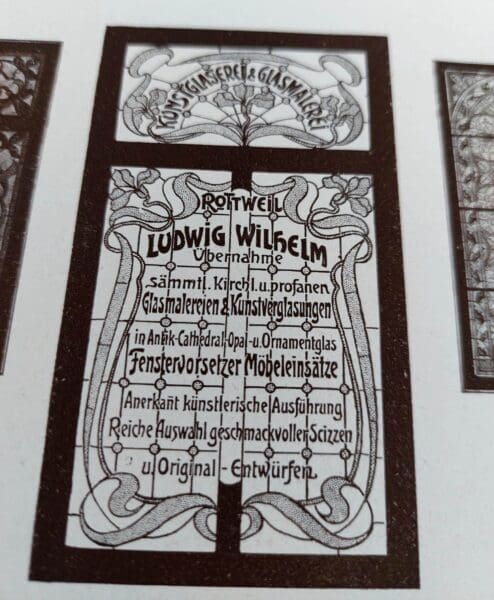 KUNSTGLASEREI & GLASMALEREI
ROTTWEIL
LUDWIG WILHELM
Übernahme
sämmtl. Kirchl. u. profanen
Glasmalereien & Kunstverglasungen
in Antik-Cathedral-Opal-u. Ornamentglas
Fenstervorsetzer Möbeleinsätze
Anerkañt künstlerische Ausführung
Reiche Auswahl geschmackvoller Scizzen
u. Original-Entwürfen.